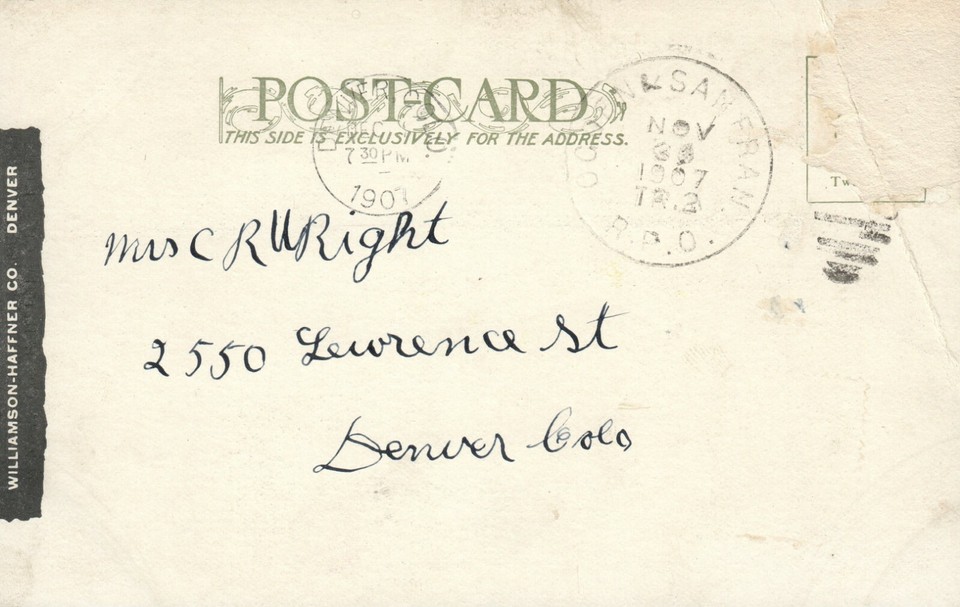 POST-CARD
THIS SIDE IS EXCLUSIVELY FOR THE ADDRESS.
DENVER, COLO.
DEC
7 30 PM
1907
SAN FRAN.
NOV
1907
TR.3
R.P.O.
Tw
Mrs C R WRight
2550 Lewrence St
Denver Colo
WILLIAMSON-HAFFNER CO. DENVER